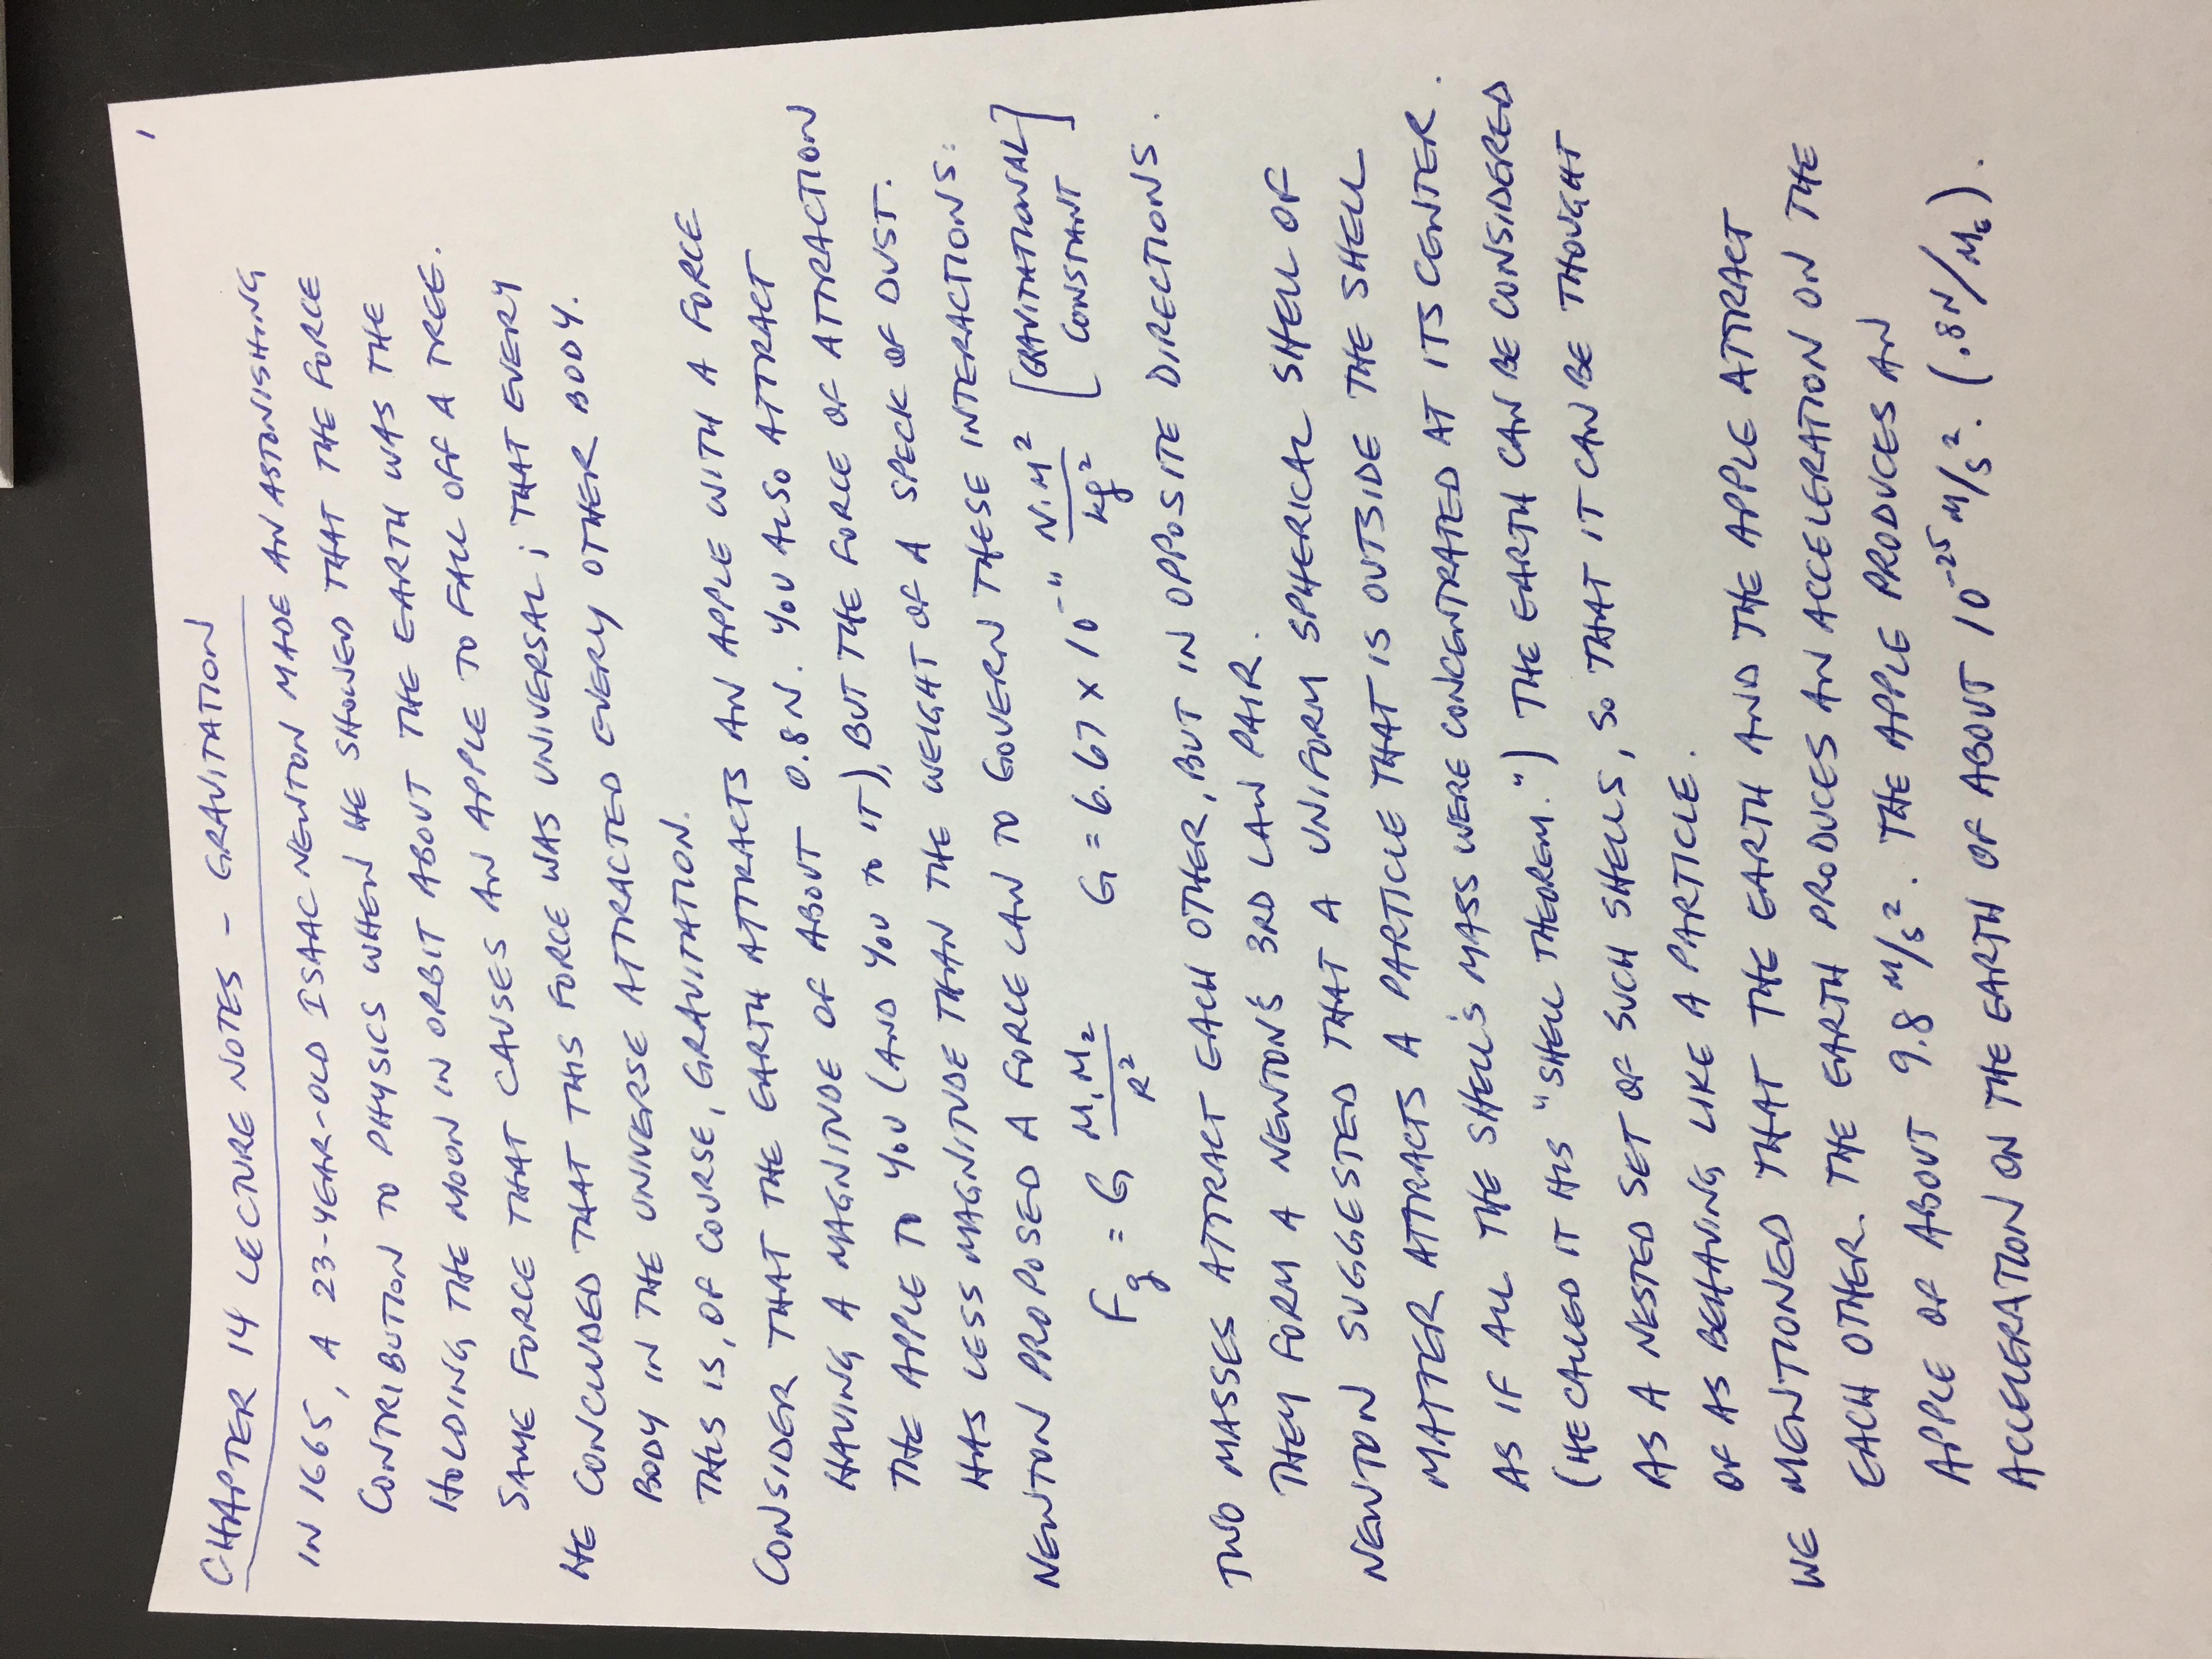 1
CHAPTER 14 LECTURE NOTES - GRAVITATION
IN 1665, A 23-YEAR-OLD ISAAC NEWTON MADE AN ASTONISHING
CONTRIBUTION TO PHYSICS WHEN HE SHOWED THAT THE FORCE
HOLDING THE MOON IN ORBIT ABOUT THE EARTH WAS THE
SAME FORCE THAT CAUSES AN APPLE TO FALL OFF A TREE.
HE CONCLUDED THAT THIS FORCE WAS UNIVERSAL; THAT EVERY
BODY IN THE UNIVERSE ATTRACTED EVERY OTHER BODY.
THIS IS, OF COURSE, GRAVITATION.
CONSIDER THAT THE EARTH ATTRACTS AN APPLE WITH A FORCE
HAVING A MAGNITUDE OF ABOUT 0.8N. YOU ALSO ATTRACT
THE APPLE TO YOU (AND YOU TO IT), BUT THE FORCE OF ATTRACTION
HAS LESS MAGNITUDE THAN THE WEIGHT OF A SPECK OF DUST.
NEWTON PROPOSED A FORCE LAW TO GOVERN THESE INTERACTIONS:
Fg = G M₁M₂/R² G = 6.67 x 10⁻¹¹ N·M²/kg² [GRAVITATIONAL CONSTANT]
TWO MASSES ATTRACT EACH OTHER, BUT IN OPPOSITE DIRECTIONS.
THEY FORM A NEWTON'S 3RD LAW PAIR.
NEWTON SUGGESTED THAT A UNIFORM SPHERICAL SHELL OF
MATTER ATTRACTS A PARTICLE THAT IS OUTSIDE THE SHELL
AS IF ALL THE SHELL'S MASS WERE CONCENTRATED AT ITS CENTER.
(HE CALLED IT HIS "SHELL THEOREM.") THE EARTH CAN BE CONSIDERED
AS A NESTED SET OF SUCH SHELLS, SO THAT IT CAN BE THOUGHT
OF AS BEHAVING LIKE A PARTICLE.
WE MENTIONED THAT THE EARTH AND THE APPLE ATTRACT
EACH OTHER. THE EARTH PRODUCES AN ACCELERATION ON THE
APPLE OF ABOUT 9.8 M/S². THE APPLE PRODUCES AN
ACCELERATION ON THE EARTH OF ABOUT 10⁻²⁵ M/S². (.8N/Mₑ).